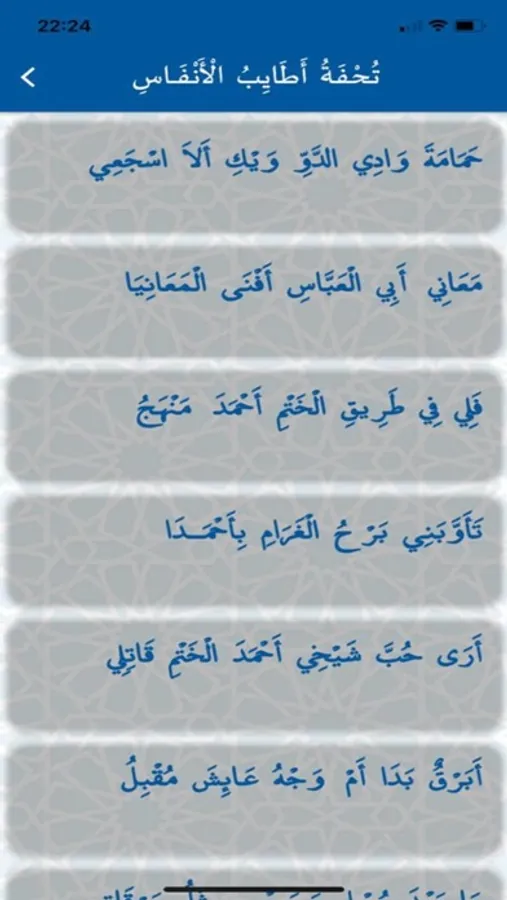 22:24
تُحْفَةُ أَطَايِبُ الْأَنْفَـاسِ
حَمَامَةَ وَادِي الدَّوِّ وَيْكِ أَلاَ اسْجَعِي
مَعَانِي أَبِي الْعَبَّاسِ أَفْنَى الْمَعَانِيَا
فَلِي فِي طَرِيقِ الْخَتْمِ أَحْمَدَ مَنْهَجُ
تَأَوَّبَنِي بَرْحُ الْغَرَامِ بِأَحْمَـدَا
أَرَى حُبَّ شَيْخِي أَحْمَدَ الْخَتْمِ قَاتِلِي
أَبَرْقٌ بَدَا أَمْ وَجْهُ عَايِشَ مُقْبِلُ